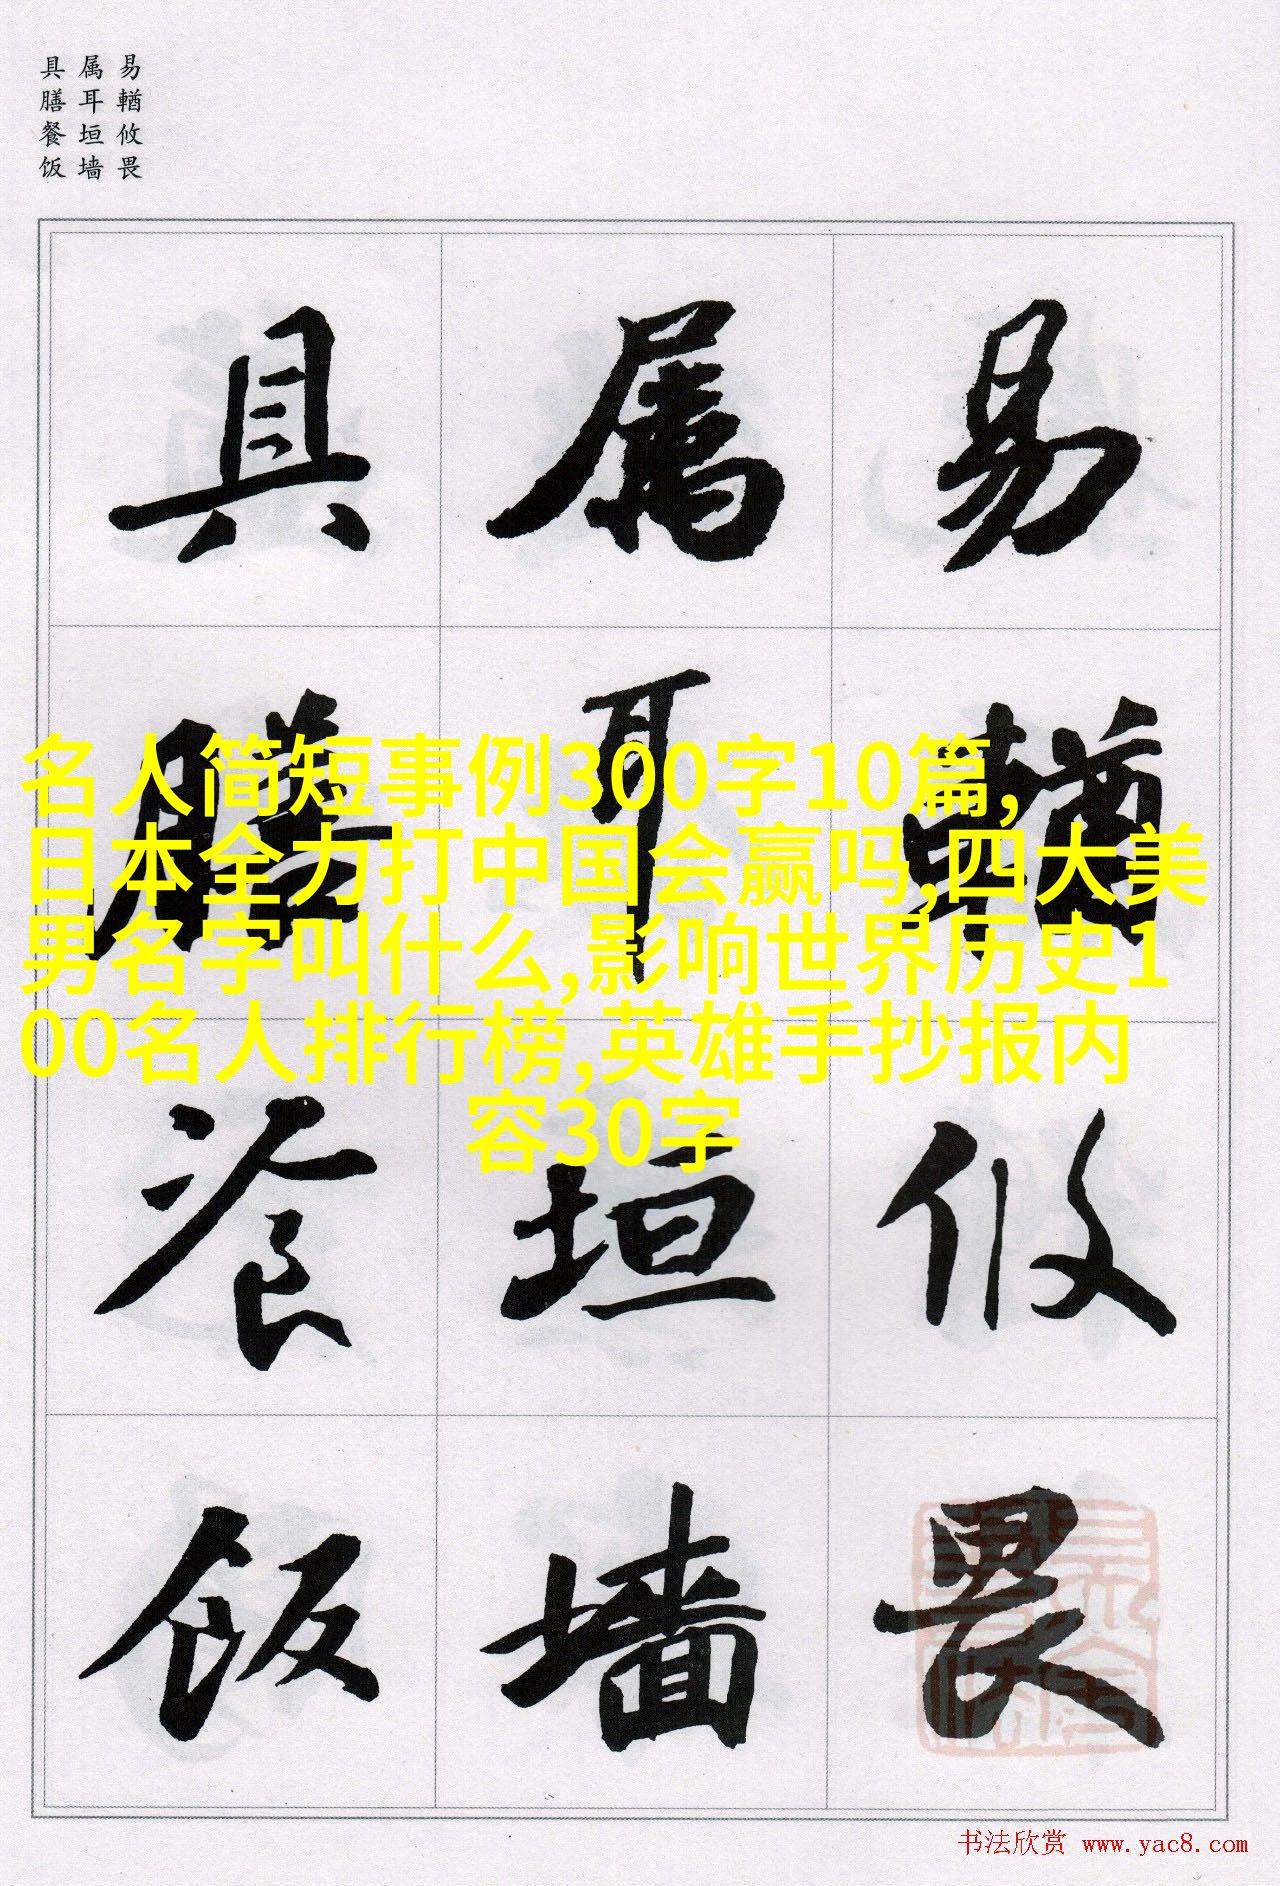 易輶攸畏
属耳垣墙
具膳餐饭
易
輶
攸
畏
属
耳
垣
墙
具
膳
飡
饭
名人简短事例300字10篇,
日本全力打中国会赢吗,四大美
男名字叫什么,影响世界历史1
00名人排行榜,英雄手抄报内
容30字
书法欣赏 www.yac8.com